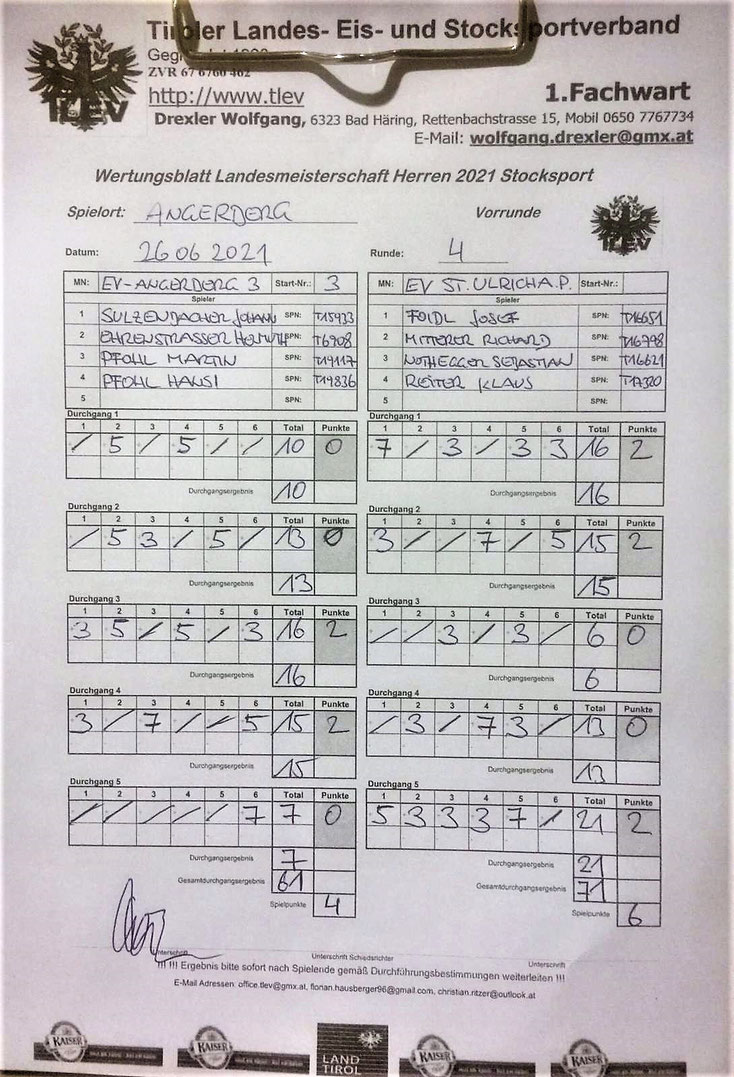 Tiroler Landes- Eis- und Stocksportverband
ZVR 67 6760 462
http://www.tlev
1.Fachwart
Drexler Wolfgang, 6323 Bad Häring, Rettenbachstrasse 15, Mobil 0650 7767734
E-Mail: wolfgang.drexler@gmx.at
TLEV
Wertungsblatt Landesmeisterschaft Herren 2021 Stocksport
Spielort: ANGERBERG Vorrunde
TLEV
Datum: 26 06 2021 Runde: 4
MN: EV-ANGERBERG 3 Start-Nr.: 3 MN: EV ST. ULRICH A.P. Start-Nr.:
Spieler Spieler
1 SULZENBACHER JOHANN SPN: T15933 1 FOIDL JOSEF SPN: T16651
2 EHRENSTRASSER HELMUTH SPN: T6908 2 MITTERER RICHARD SPN: T16798
3 PFOHL MARTIN SPN: T19117 3 NOTHEGGER SEBASTIAN SPN: T16621
4 PFOHL HANSI SPN: T19836 4 REITER KLAUS SPN: T17320
5 SPN: 5 SPN:
Durchgang 1 Durchgang 1
1 2 3 4 5 6 Total Punkte 1 2 3 4 5 6 Total Punkte
/ 5 / 5 / / 10 0 7 / 3 / 3 3 16 2
Durchgangsergebnis 10 Durchgangsergebnis 16
Durchgang 2 Durchgang 2
1 2 3 4 5 6 Total Punkte 1 2 3 4 5 6 Total Punkte
/ 5 3 / 5 / 13 0 3 / / 7 / 5 15 2
Durchgangsergebnis 13 Durchgangsergebnis 15
Durchgang 3 Durchgang 3
1 2 3 4 5 6 Total Punkte 1 2 3 4 5 6 Total Punkte
3 5 / 5 / 3 16 2 / / 3 / 3 / 6 0
Durchgangsergebnis 16 Durchgangsergebnis 6
Durchgang 4 Durchgang 4
1 2 3 4 5 6 Total Punkte 1 2 3 4 5 6 Total Punkte
3 / 7 / / 5 15 2 / 3 / 7 3 / 13 0
Durchgangsergebnis 15 Durchgangsergebnis 13
Durchgang 5 Durchgang 5
1 2 3 4 5 6 Total Punkte 1 2 3 4 5 6 Total Punkte
/ / / / / 7 7 0 5 3 3 3 7 / 21 2
Durchgangsergebnis 7 Durchgangsergebnis 21
Gesamtdurchgangsergebnis 61 Gesamtdurchgangsergebnis 71
Spielpunkte 4 Spielpunkte 6
Unterschrift Unterschrift Schiedsrichter Unterschrift
!!! !!! Ergebnis bitte sofort nach Spielende gemäß Durchführungsbestimmungen weiterleiten !!!
E-Mail Adressen: office.tlev@gmx.at, florian.hausberger96@gmail.com, christian.ritzer@outlook.at
KAISER KAISER LAND TIROL KAISER KAISER